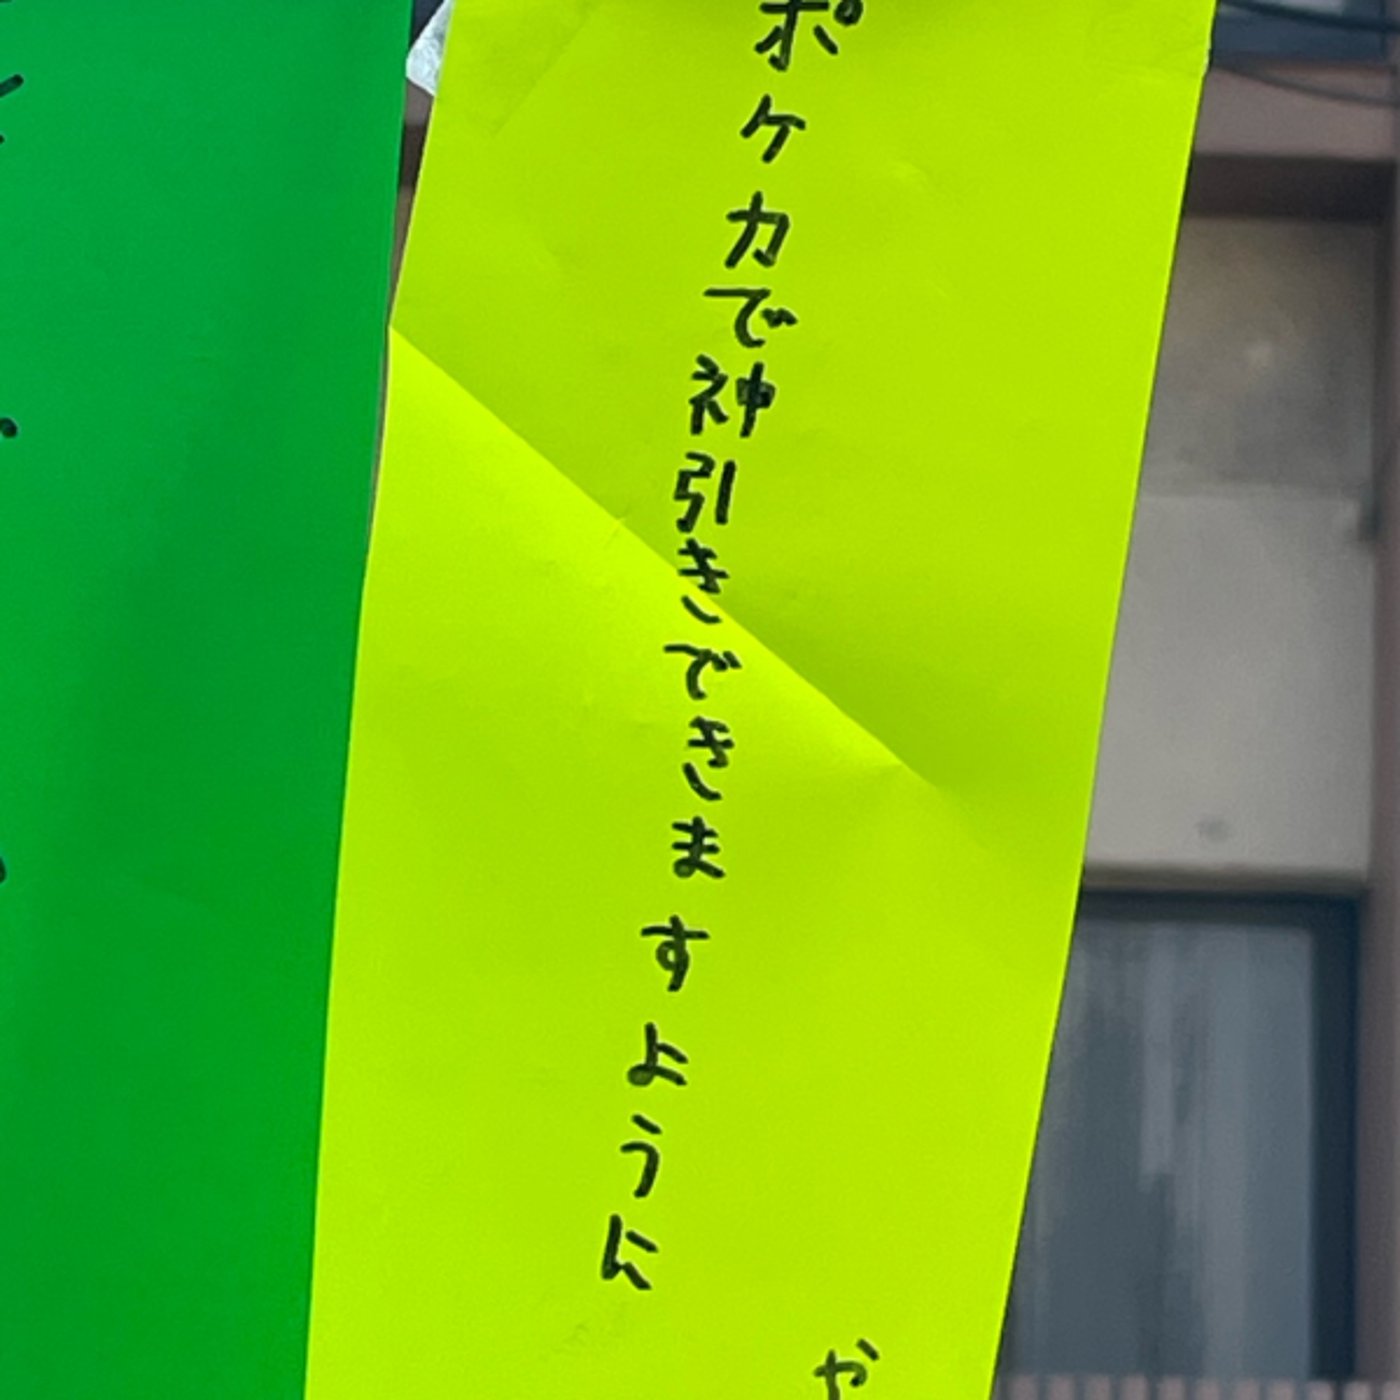 ポケカで神引きできますように
か